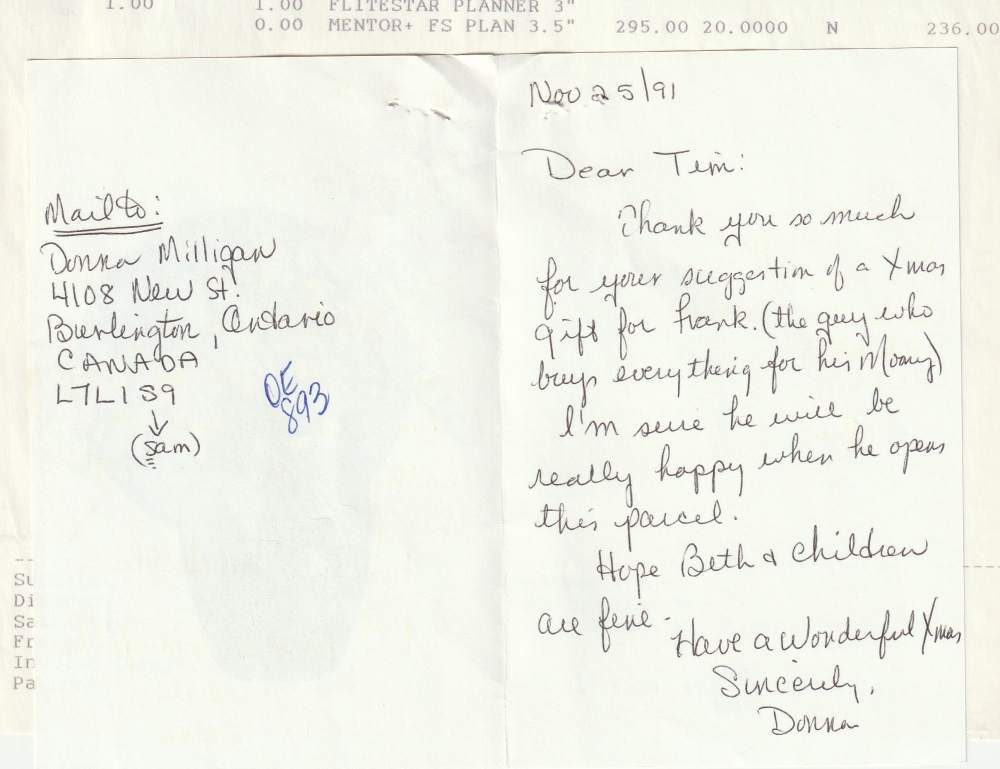 1.00 1.00 FLITESTAR PLANNER 3"
0.00 MENTOR+ FS PLAN 3.5" 295.00 20.0000 N 236.00
Mail to:
Donna Milligan
4108 New St.
Burlington, Ontario
CANADA
L7L1S9
(Sam)
OE
893
Nov 25/91
Dear Tim:
Thank you so much
for your suggestion of a Xmas
gift for Frank. (the guy who
buys everything for his Moony)
I'm sure he will be
really happy when he opens
this parcel.
Hope Beth & children
are fine.
Have a wonderful Xmas
Sincerely,
Donna
Su
Di
Sa
Fr
In
Pa